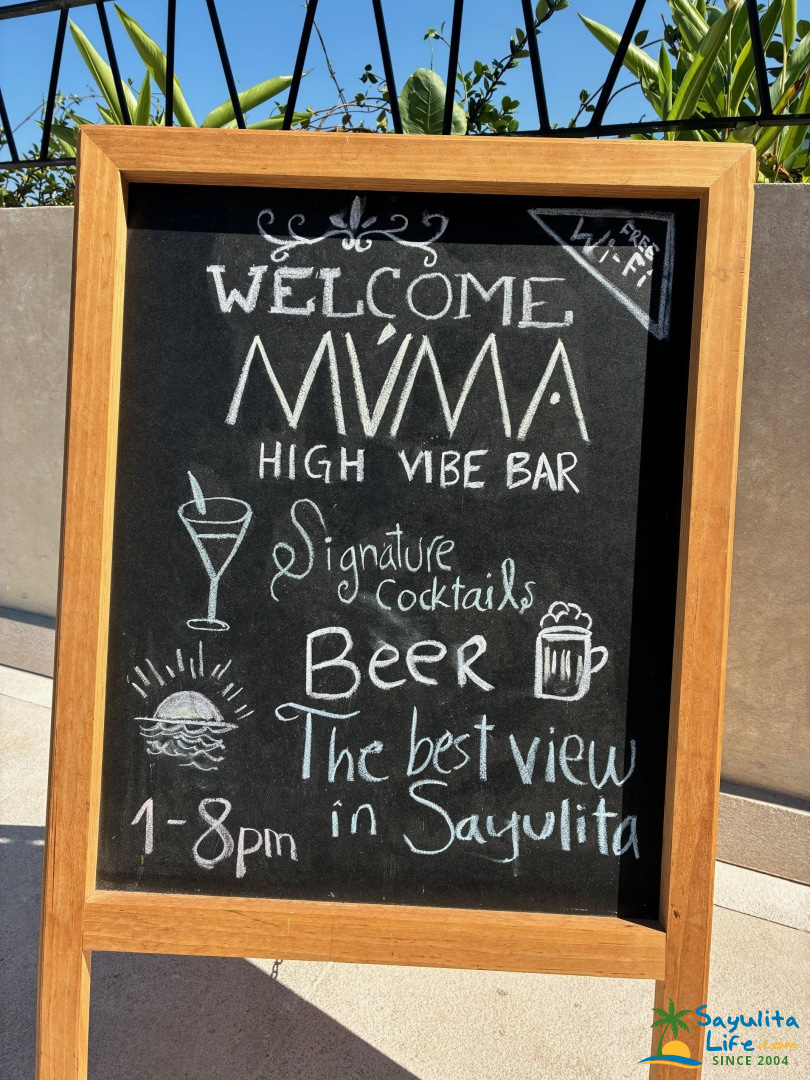 FREE
Wi-Fi
WELCOME
MÚMA
HIGH VIBE BAR
Signature
Cocktails
Beer
The best view
in Sayulita
1-8pm
Sayulita
Life.com
SINCE 2004